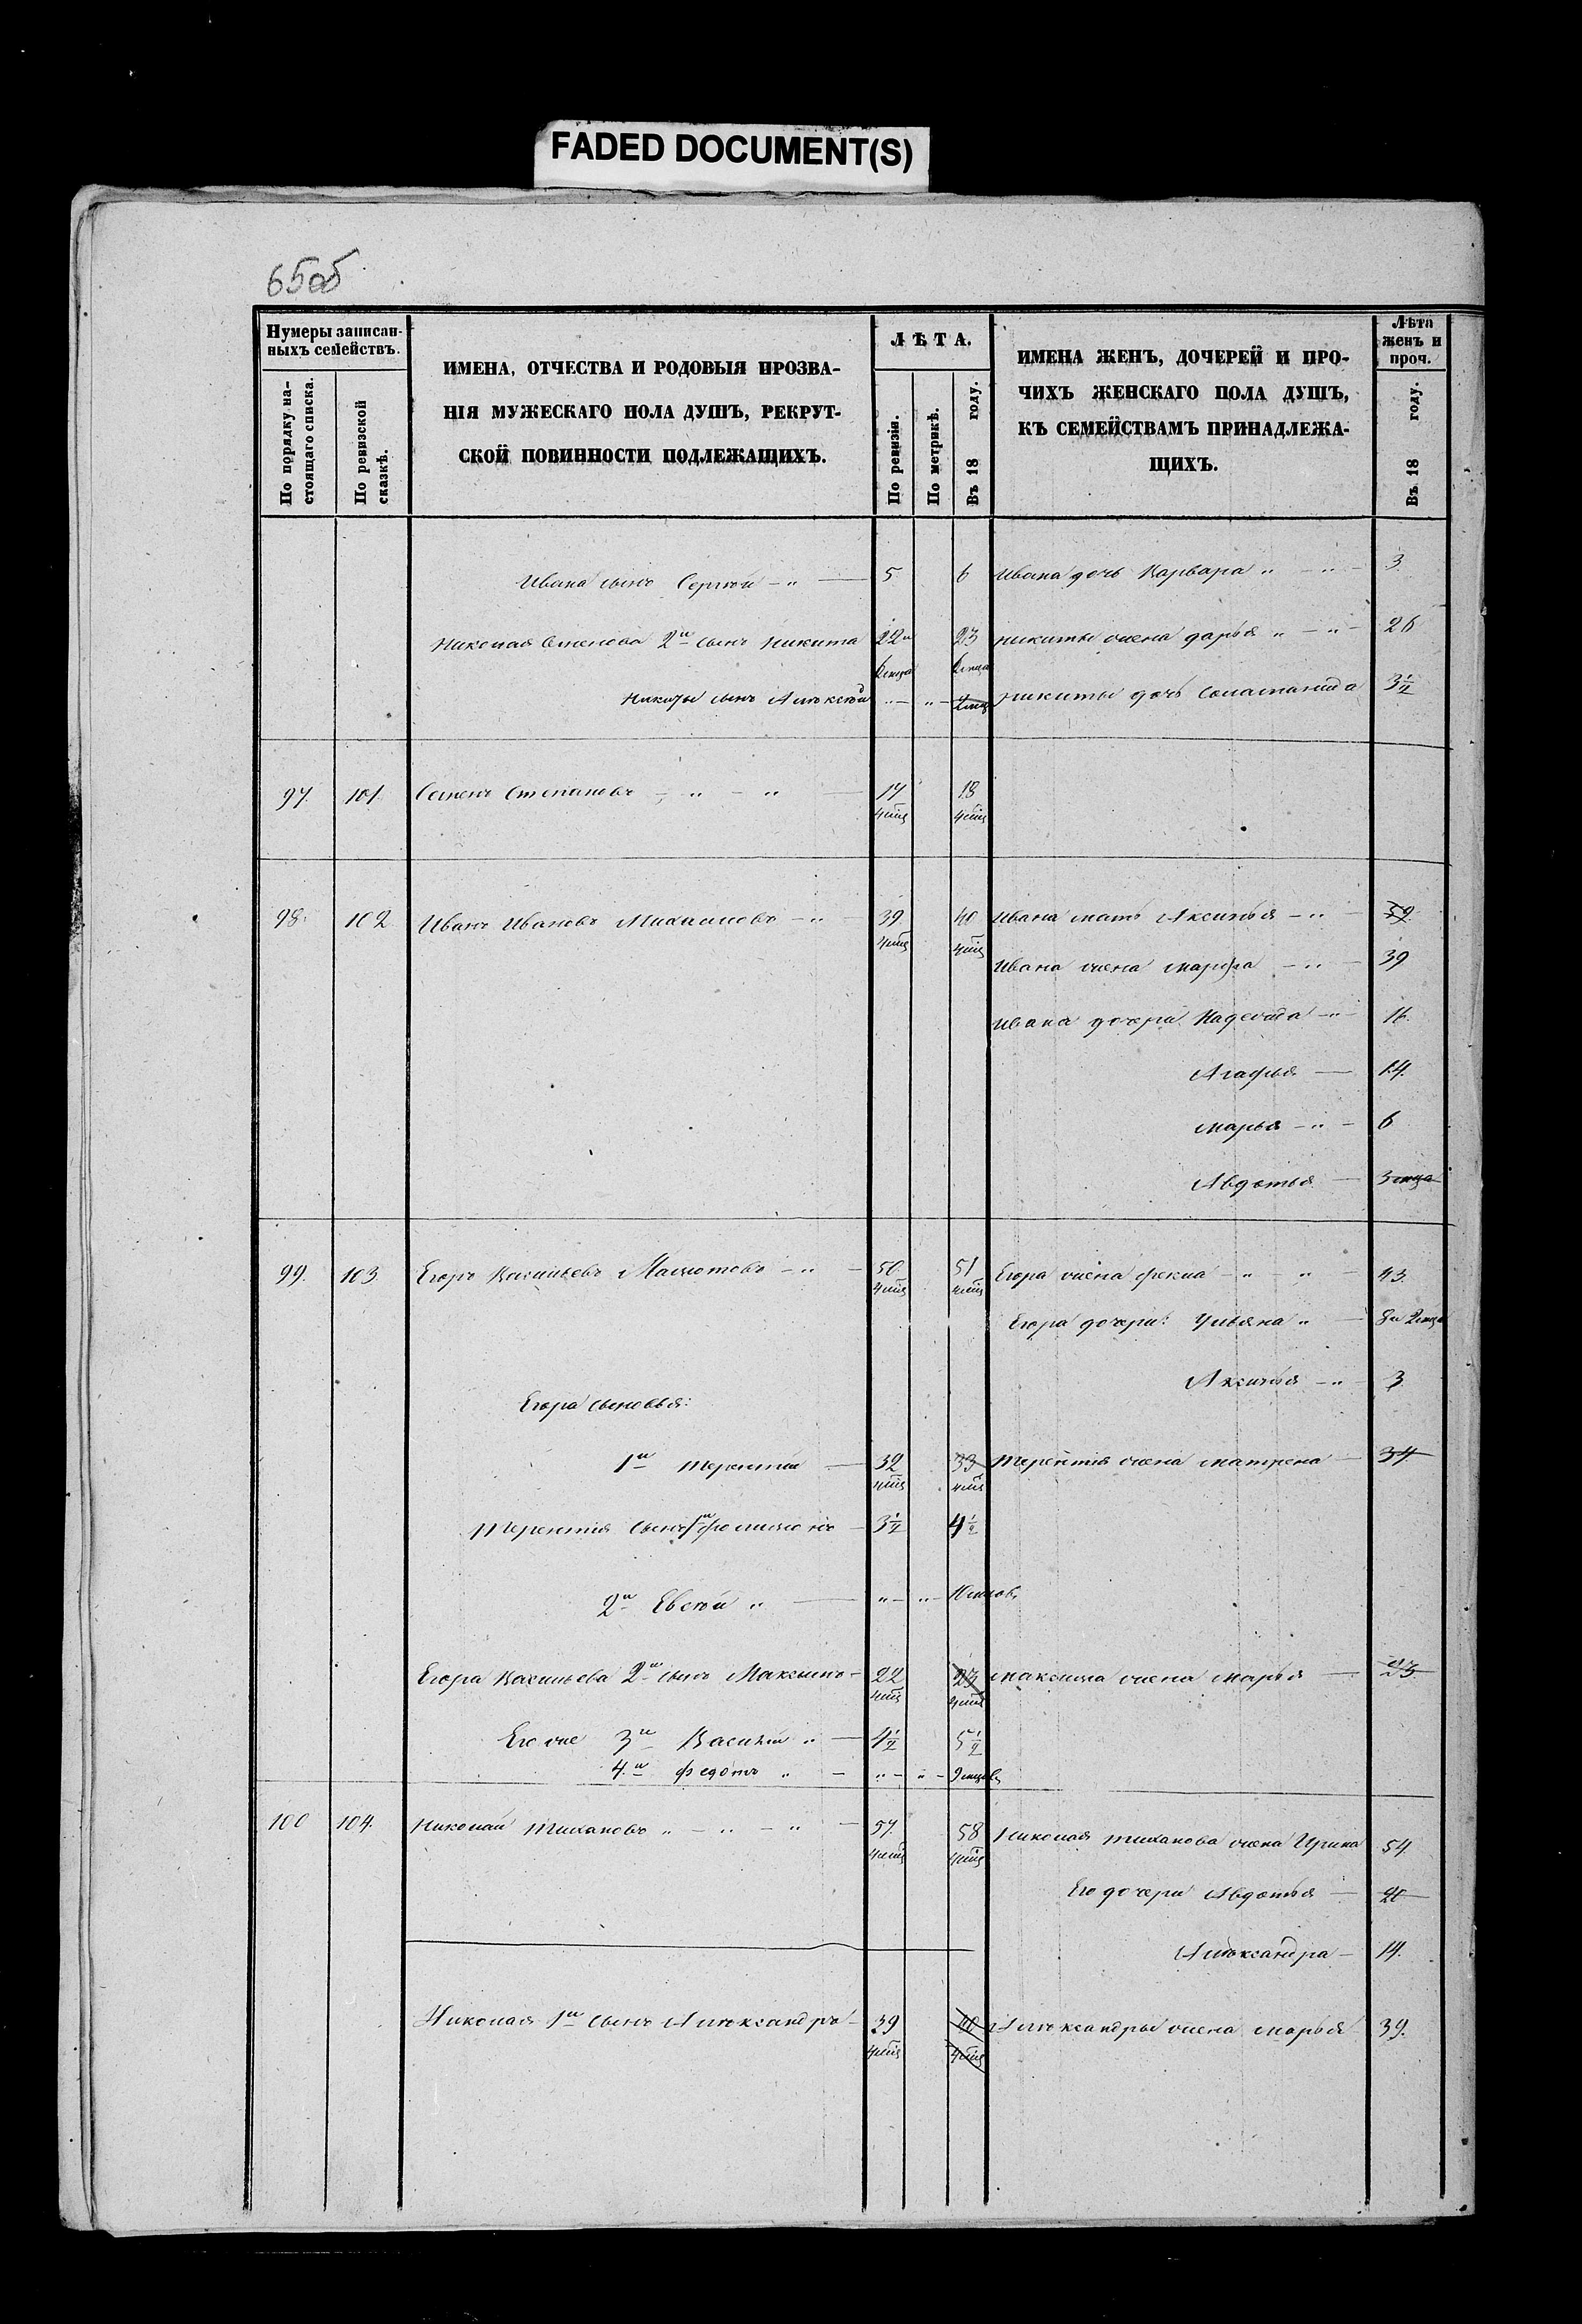 FADED DOCUMENT(S)
65об
Нумеры записан-
ныхъ семействъ.
По порядку на-
стоящаго списка.
По ревизской
сказкѣ.
ИМЕНА, ОТЧЕСТВА И РОДОВЫЯ ПРОЗВА-
НІЯ МУЖЕСКАГО ПОЛА ДУШЪ, РЕКРУТ-
СКОЙ ПОВИННОСТИ ПОДЛЕЖАЩИХЪ.
ЛѢТА.
По ревизіи.
По метрикѣ.
Въ 18 году.
ИМЕНА ЖЕНЪ, ДОЧЕРЕЙ И ПРО-
ЧИХЪ ЖЕНСКАГО ПОЛА ДУШЪ,
КЪ СЕМЕЙСТВАМЪ ПРИНАДЛЕЖА-
ЩИХЪ.
Лѣта
женъ и
проч.
Въ 18 году.
Ивана сынъ Сергѣй - „ — 5 6 Ивана дочь Варвара „ - „ - 3
Николая Семенова 2й сынъ Никита 22и 23 Никиты жена Дарья „ - „ - 26
Никиты сынъ Алексѣй „ - „ - Никиты дочь Соломанида 3½
97. 101. Семенъ Степановъ - „ - „ — 17 18
4мѣц 4мѣц
98. 102 Иванъ Ивановъ Михаиловъ - „ - 39 40 Ивана мать Аксинья - „ - 59
4мѣц 4мѣц
Ивана жена Марфа - „ - 39
Ивана дочери Надежда - „ - 16.
Агафья — 14.
Марья - „ - 6
Авдотья — 3 мца
99. 103. Егоръ Васильевъ - „ - 50 51 Егора жена Фекла - „ - „ - 43.
4мѣц 4мѣц
Егора дочери: Ульяна „ — 8и 2мца
Аксинья - „ - 3
Егора сыновья:
1й Терентий — 32 33 Терентия жена Матрена — 34
4мѣц 4мѣц
Терентия сынъ 1й Филимонъ - 3½ 4½
2й Евсѣй „ — „ - „ - 10мцов
Егора Васильева 2й сынъ Максимъ - 22 23 Максима жена Марья — 23
4мѣц 4мѣц
Его же 3й Василий „ — 4½ 5½
4й Федотъ „ - „ - „ - 9мцов
100 104. Николай Тихановъ „ - „ - „ — 57. 58 Николая Тиханова жена Ирина 54
4мѣц 4мѣц
Его дочери Авдотья — 20
Александра - 14.
Николая 1й сынъ Александръ - 39 40 Александры жена Марья 39.
4мѣц 4мѣц